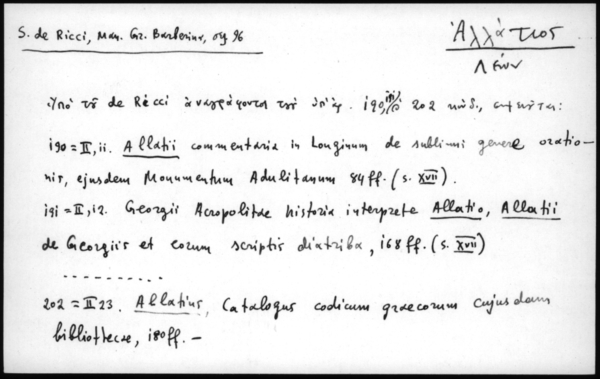 S. de Ricci, Man. Gr. Barberini, σσ 96
Ἀλλάτιος
Λέων
Ὑπὸ τοῦ de Ricci ἀναγράφονται τοῦ 190, 191 202 κώδ.,
190 = II, 11. Allatii commentaria in Longinum de sublimi genere oratio-
nis, ejusdem Monumentum Adulitanum 84 ff. (s. XVII).
191 = II, 12. Georgii Acropolitae historia interprete Allatio, Allatii
de Georgiis et eorum scriptis diatriba, 168 ff. (s. XVII)
..........
202 = II 23. Allatius, Catalogus codicum graecorum cujusdam
bibliothecae, 180 ff. —